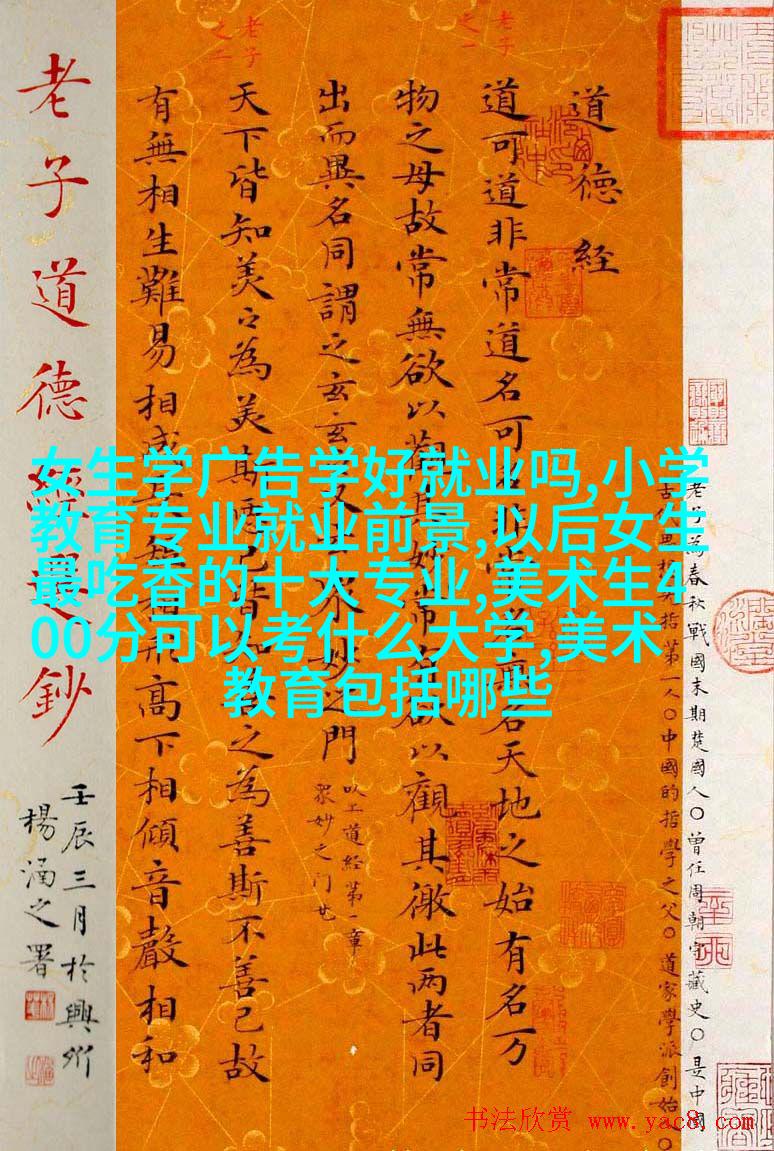 老子為春秋戰國末期楚國人〇曾任周朝守藏史〇是中國
古代思想 指第一人〇中國的哲學之父〇道家學派創始人〇
道德經
老子之一
道可道非常道名可名非常名無名天地之始有名万
物之母故常無欲以觀其妙常有欲以觀其徼此两者同
出而異名同謂之玄玄之又玄眾妙之門
以上道經第一章
眾妙之门
老子之二
天下皆知美々為美斯恶已皆知善之為善斯不善已故
有無相生難易相成長短相形高下相傾音聲相和
老子道德經選鈔
壬辰三月於興
楊涵之署
女生学广告学好就业吗,小学
教育专业就业前景,以后女生
最吃香的十大专业,美术生4
00分可以考什么大学,美术
教育包括哪些
书法欣赏 www.yac8.com